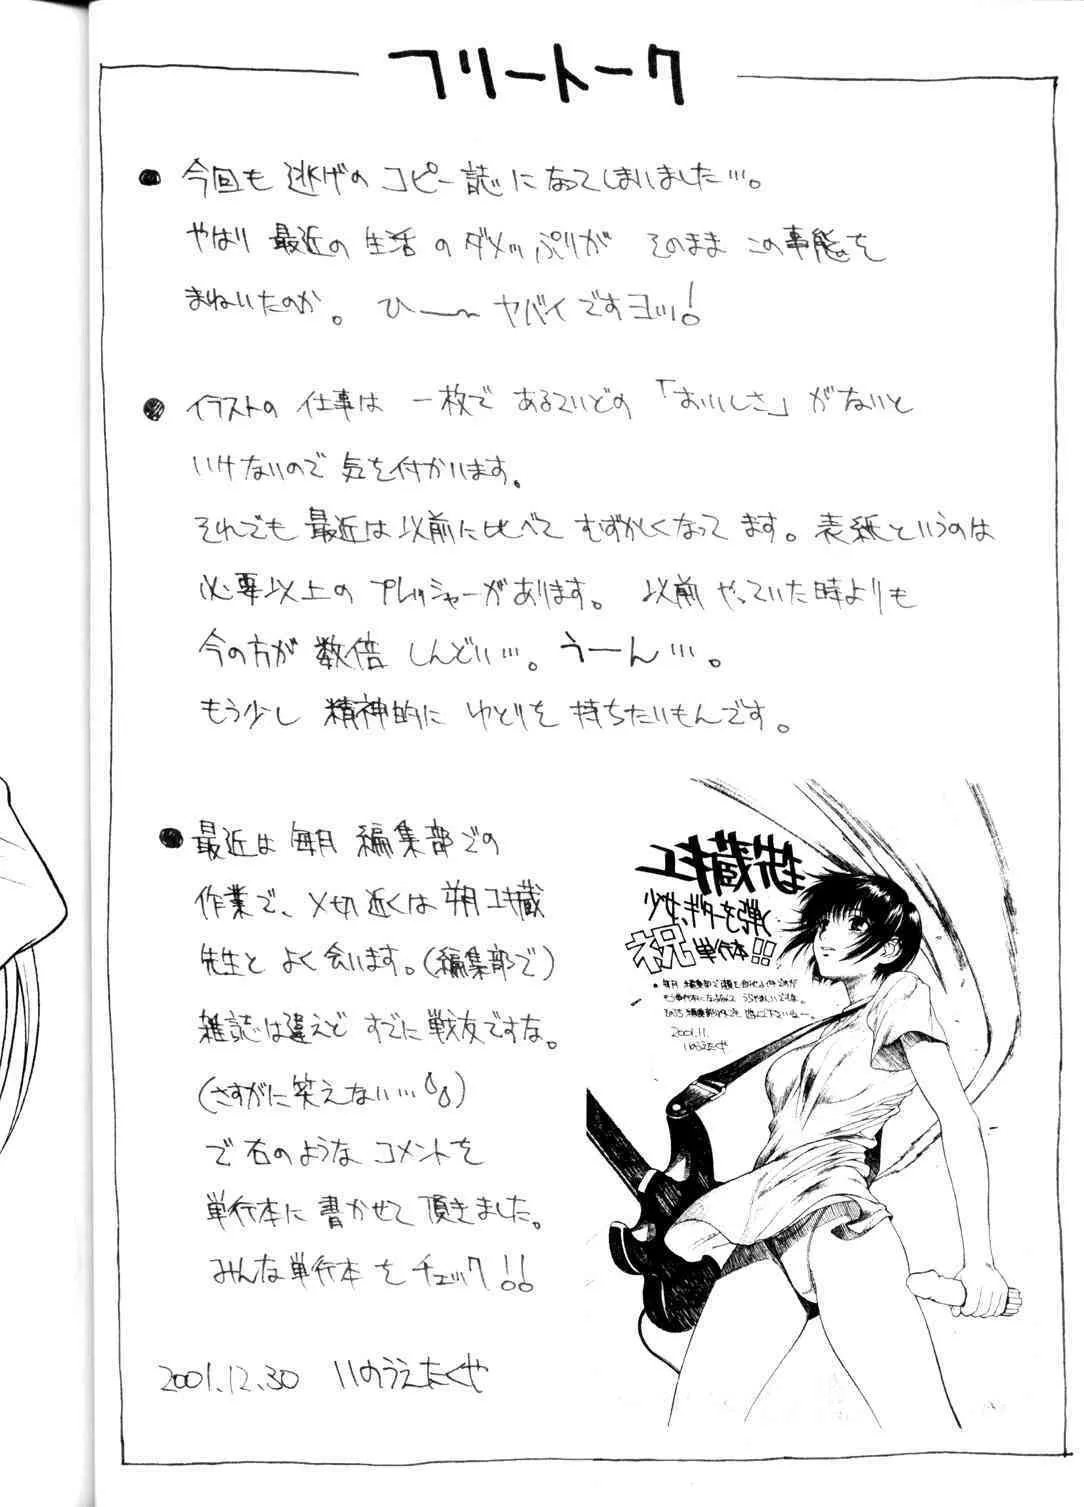 フリートーク
● 今回も 逃げの コピー誌に なってしまいました…。
やはり 最近の 生活 の ダメッぷりが そのまま この事態を
まねいたのか。 ひー〜 ヤバイですヨッ!
● イラストの 仕事は 一枚で あるていどの 「おいしさ」がないと
いけないので 気を付かいます。
それでも 最近は以前に比べて むずかしくなってます。表紙というのは
必要以上の プレッシャーがあります。 以前やっていた時よりも
今の方が 数倍 しんどい…。うーん…。
もう少し 精神的に ゆとりを 持ちたいもんです。
● 最近は 毎月 編集部での
作業で、〆切近くは 朔ユキ蔵
先生と よく会います。(編集部で)
雑誌は違えど すでに戦友ですな。
(さすがに笑えない…)
で右のような コメントを
単行本に 書かせて頂きました。
みんな単行本をチェック!!
2001.12.30 いのうえたくや
ユキ蔵先生
少女、ギターを弾く
祝 単行本!!
● 毎月 編集部で
2001.11.
いのうえたくや